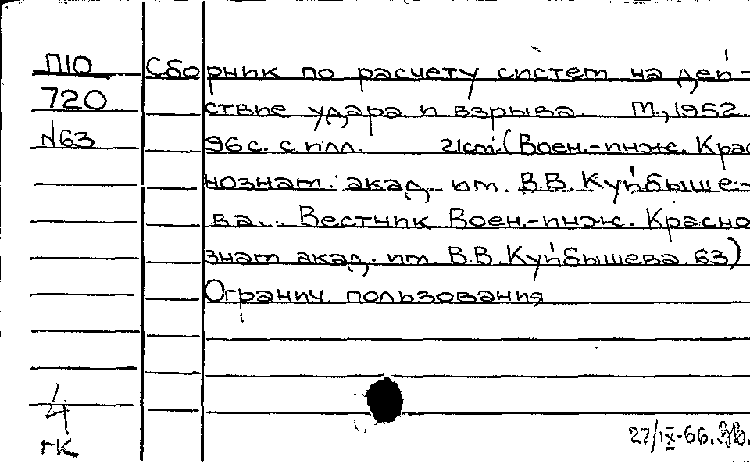 П10 Сборник по расчету систем на дей-
720 ствие удара и взрыва. М., 1952.
N63 96 с. с илл. 21 см. (Воен.-инж. Крас
нознам. акад. им. В.В. Куйбыше-
ва. Вестник Воен.-инж. Красно
знам акад. им В.В. Куйбышева 63)
Огранич. пользования
4
гк
27/IX-66.